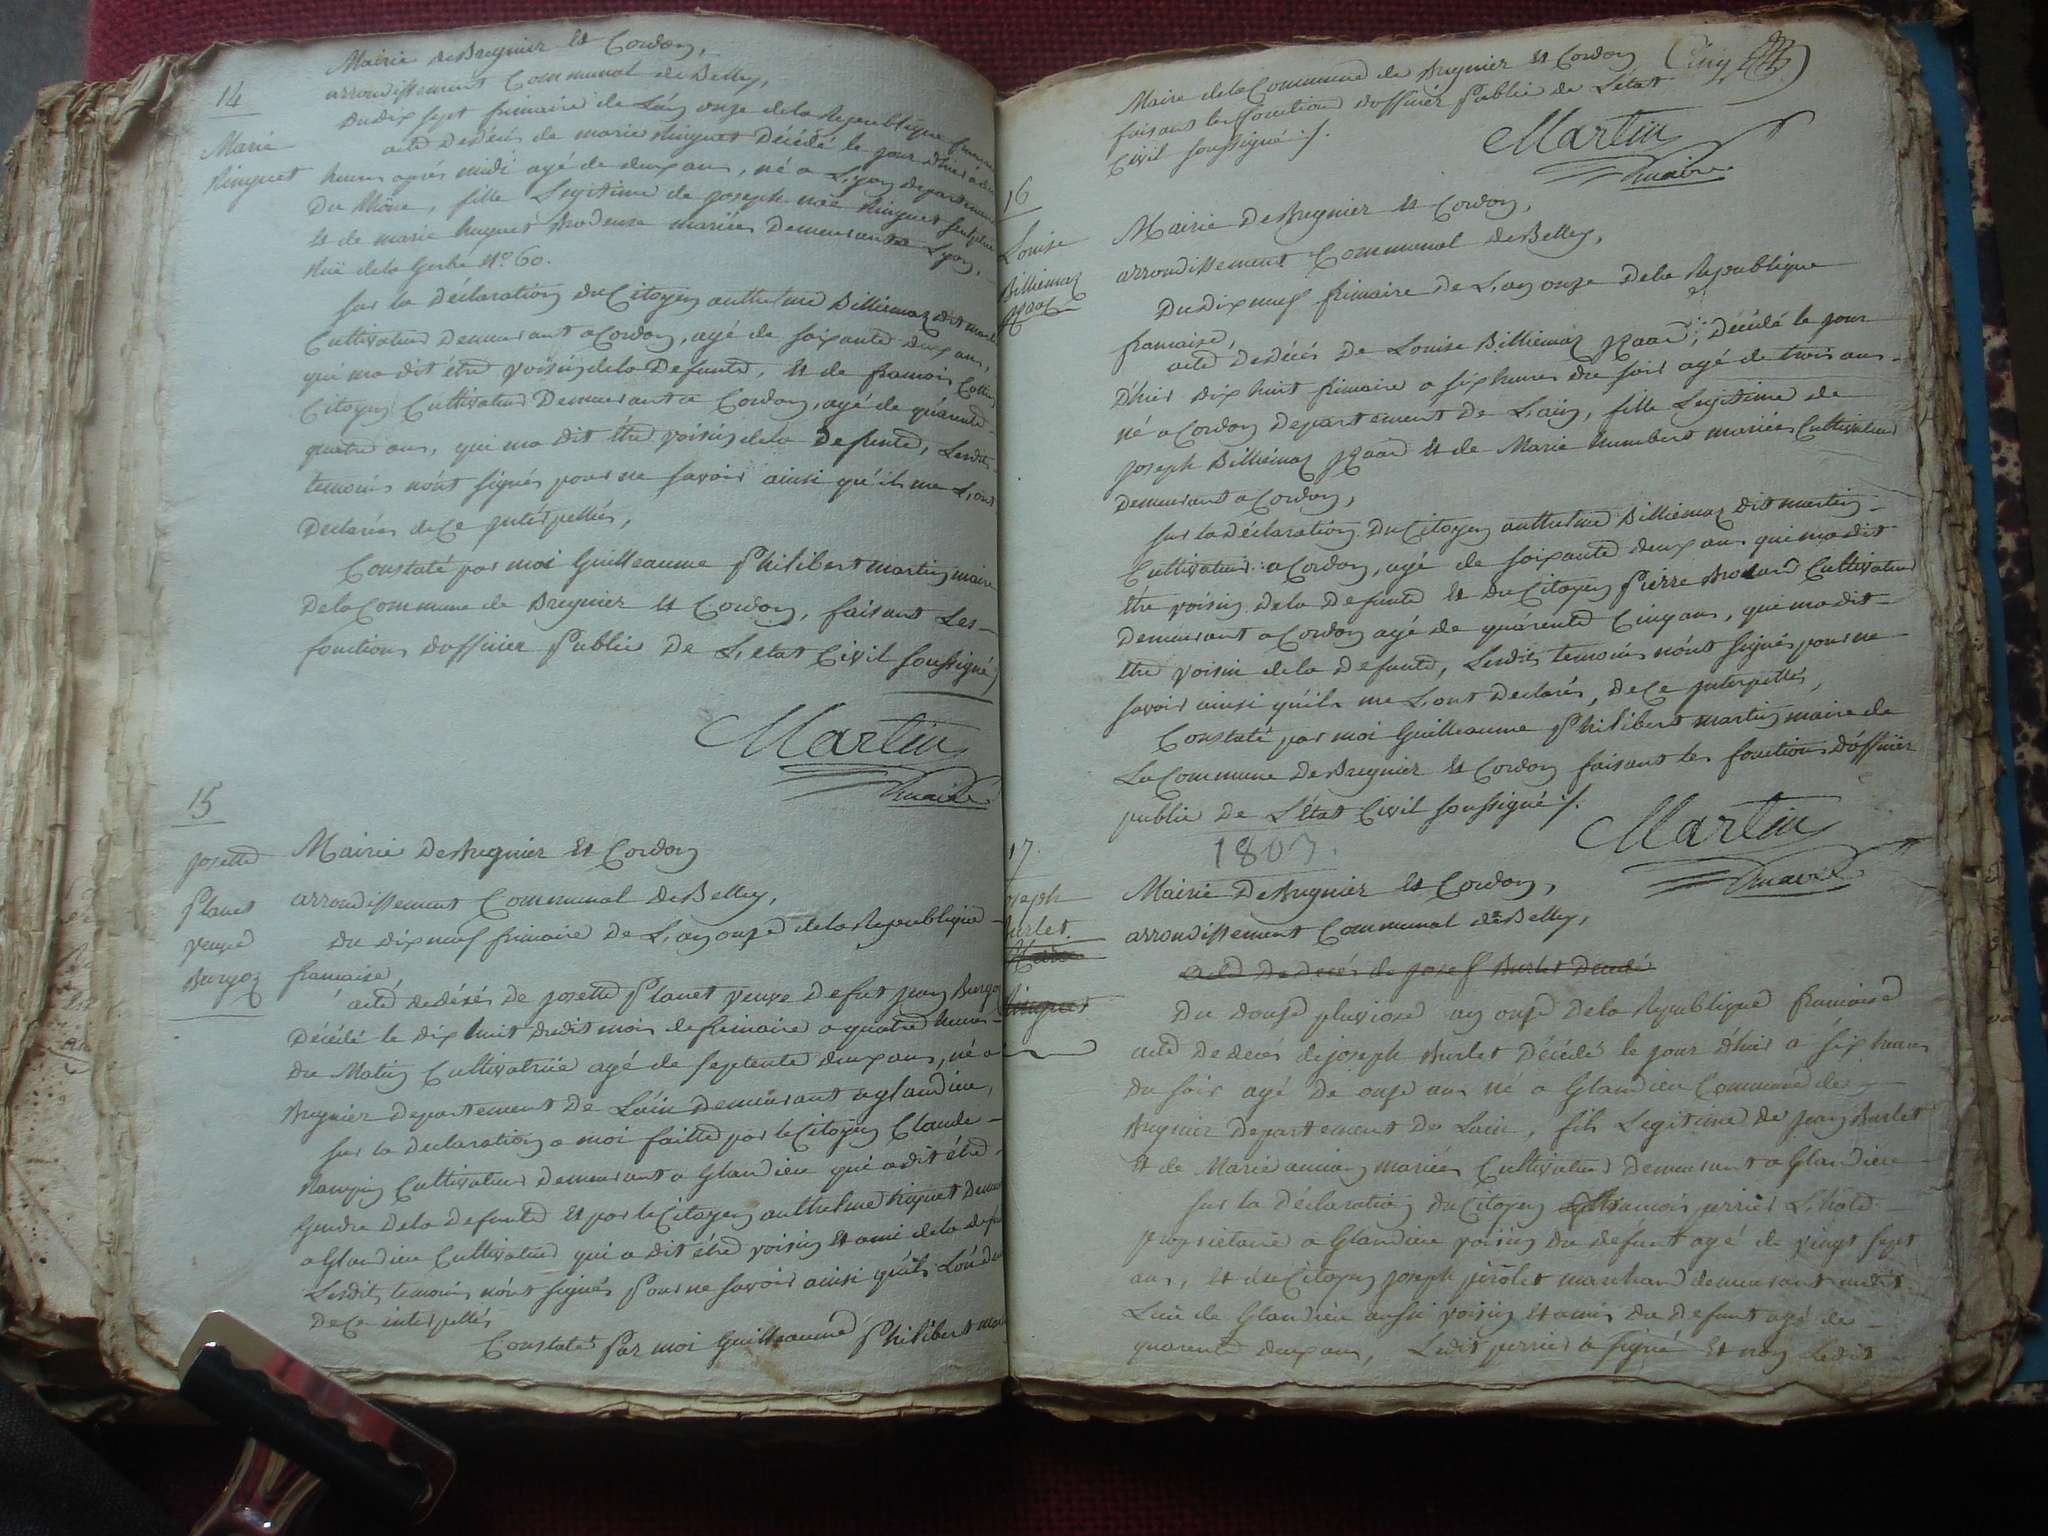 14
Marie
Ringuet
Mairie de Bregnier et Cordon,
arrondissement Communal de Belley,
Du dix sept frimaire de L'an onze de la Republique francaise
acte de décès de marie Ringuet Décédé le jour d'hier à
heures après midi agé de deux ans, né a Lyon departement
Du Rhône, fille Legitime de joseph Ringuet
et de marie huguet Brodeuse mariés Demeurant a Lyon,
Rüe de la Gerbe N.o 60.
Sur la déclaration du Citoyen anthelme Billiemaz dit martin
Cultivateur Demeurant a Cordon, agé de soixante deux ans,
qui ma dit être voisin de la Defunte, et de francois
Citoyen Cultivateur Demeurant a Cordon, agé de quarente
quatre ans, qui ma dit être voisin de la defunte, Lesdits
temoins n'ont signés pour ne savoir ainsi qu'ils me L'ont
Declarés de ce interpellés,
Constaté par moi Guilleaume Philibert martin maire
De la Commune de Bregnier et Cordon, faisant Les
fonctions d'officier Public de L'etat Civil soussigné
Martin
maire
15
josette
Planet
veuve
Burgoz
Mairie De Bregnier et Cordon
arrondissement Communal de Belley,
du dix neuf frimaire de L'an onze de la Republique
francaise,
acte de décés de josette Planet veuve de fut jean Burgoz
Décédé le dix huit dudit mois de frimaire a quatre heures
du Matin Cultivatrice agé de septente deux ans, né a
Bregnier departement de L'ain demeurant a glandieu,
sur la declaration a moi faitte par le Citoyen Claude
Cultivateur demeurant a Glandieu qui a dit être
Gendre de la defunte et par le Citoyen anthelme
a Glandieu Cultivateur qui a dit être voisin et ami de la
Lesdits temoins n'ont signés pour ne savoir ainsi qu'ils
De ce interpellés
Constaté Par moi Guilleaume Philibert
Maire de la Commune de Bregnier et Cordon
faisant les fonctions d'officier Public de L'état
Civil soussigné ./.
Martin
maire
16
Louise
Billiemaz
jzaac
Mairie De Bregnier et Cordon,
arrondissement Communal de Belley,
Du dix neuf frimaire de L'an onze de la Republique
francaise,
acte de décès de Louise Billiemaz jzaac, Décédé le jour
D'hier dix huit frimaire a six heures du soir agé de trois ans
né a Cordon departement de L'ain, fille Legitime de
joseph Billiemaz jzaac et de Marie humbert mariés Cultivateur
demeurant a Cordon,
sur la déclaration du Citoyen anthelme Billiemaz dit martin
Cultivateur a Cordon, agé de soixante deux ans qui ma dit
être voisin de la Defunte et du Citoyen Pierre Cultivateur
demeurant a Cordon agé de quarente Cinq ans, qui ma dit
être voisin de la defunte, Lesdits temoins n'ont signés pour ne
savoir ainsi qu'ils me L'ont Declarés, de ce interpellés,
Constaté par moi Guilleaume Philibert martin maire de
La Commune De Bregnier et Cordon faisant les fonctions d'officier
public de L'état Civil soussigné ./.
Martin
maire
1803.
17.
joseph
Burlet
Ringuet
Mairie De Bregnier et Cordon,
arrondissement Communal de Belley,
acte de decés de josef Burlet Decedé
Du douze pluviose an onze de la Republique francaise
acte de decés de joseph Burlet Décédé le jour d'hier a six heures
du soir agé de onze ans né a Glandieu Commune de
Bregnier departement de Lain, fils Legitime de jean Burlet
et de Marie mariés Cultivateur demeurant a Glandieu
sur la déclaration du Citoyen francois perrier L'hote
propriétaire a Glandieu voisin du défunt agé de vingt sept
ans, et du Citoyen joseph marchand demeurant audit
Lieu de Glandieu aussi voisin et ami du defunt agé de
quarente deux ans, Ledit perrier a signé et non Ledit